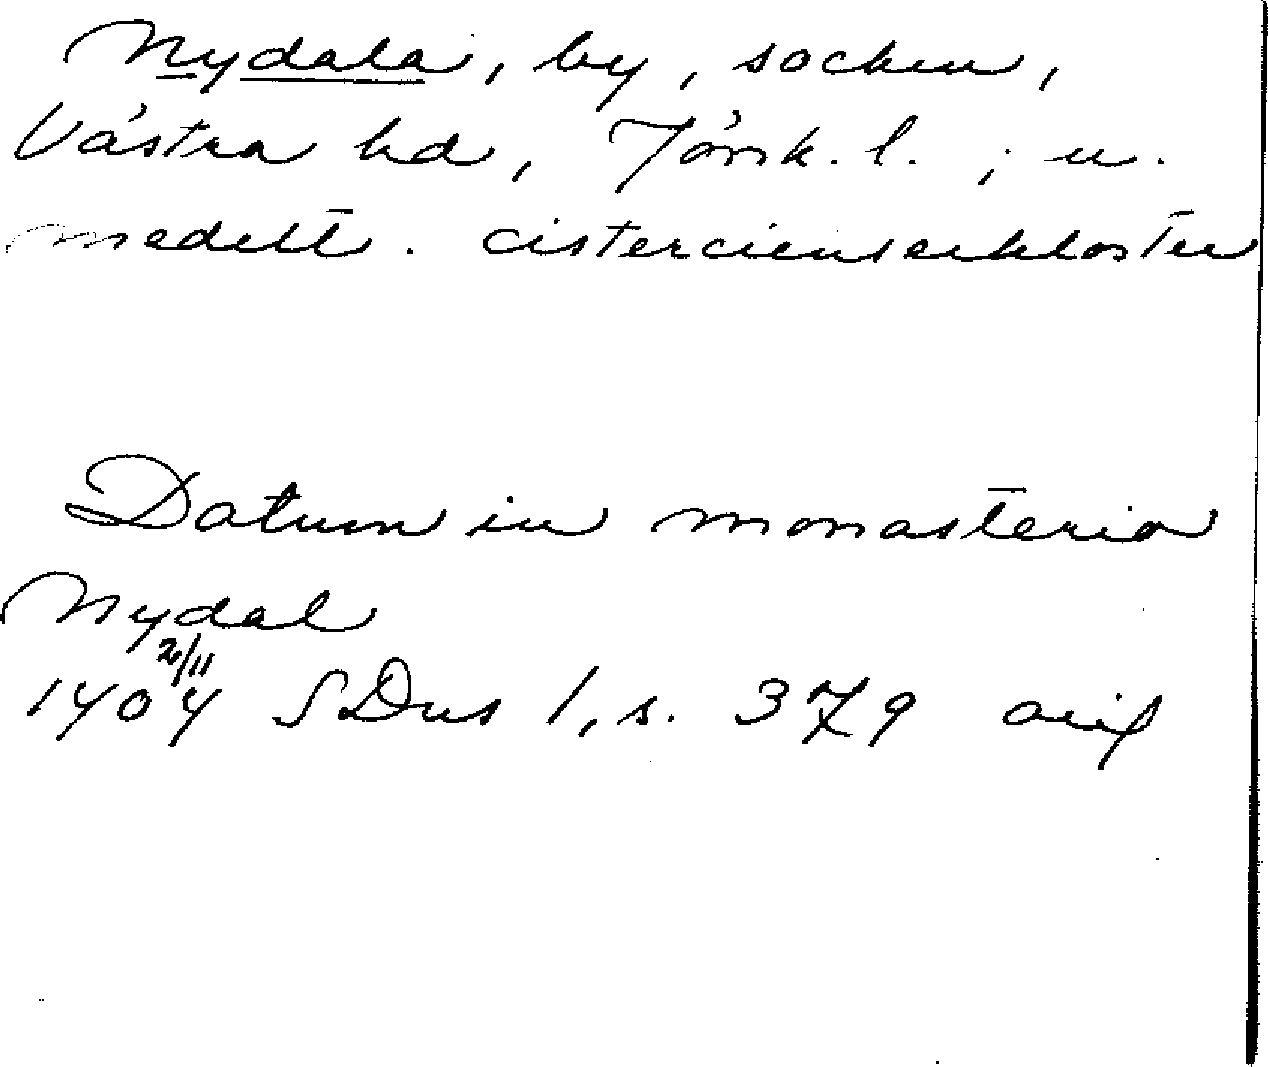 Nydala, by, socken,
Västra hd, Jönk. l. ; u.
medelt. cistercienserkloster
Datum in monasterio
Nydal
1404 2/11 SDns 1, s. 379 orig